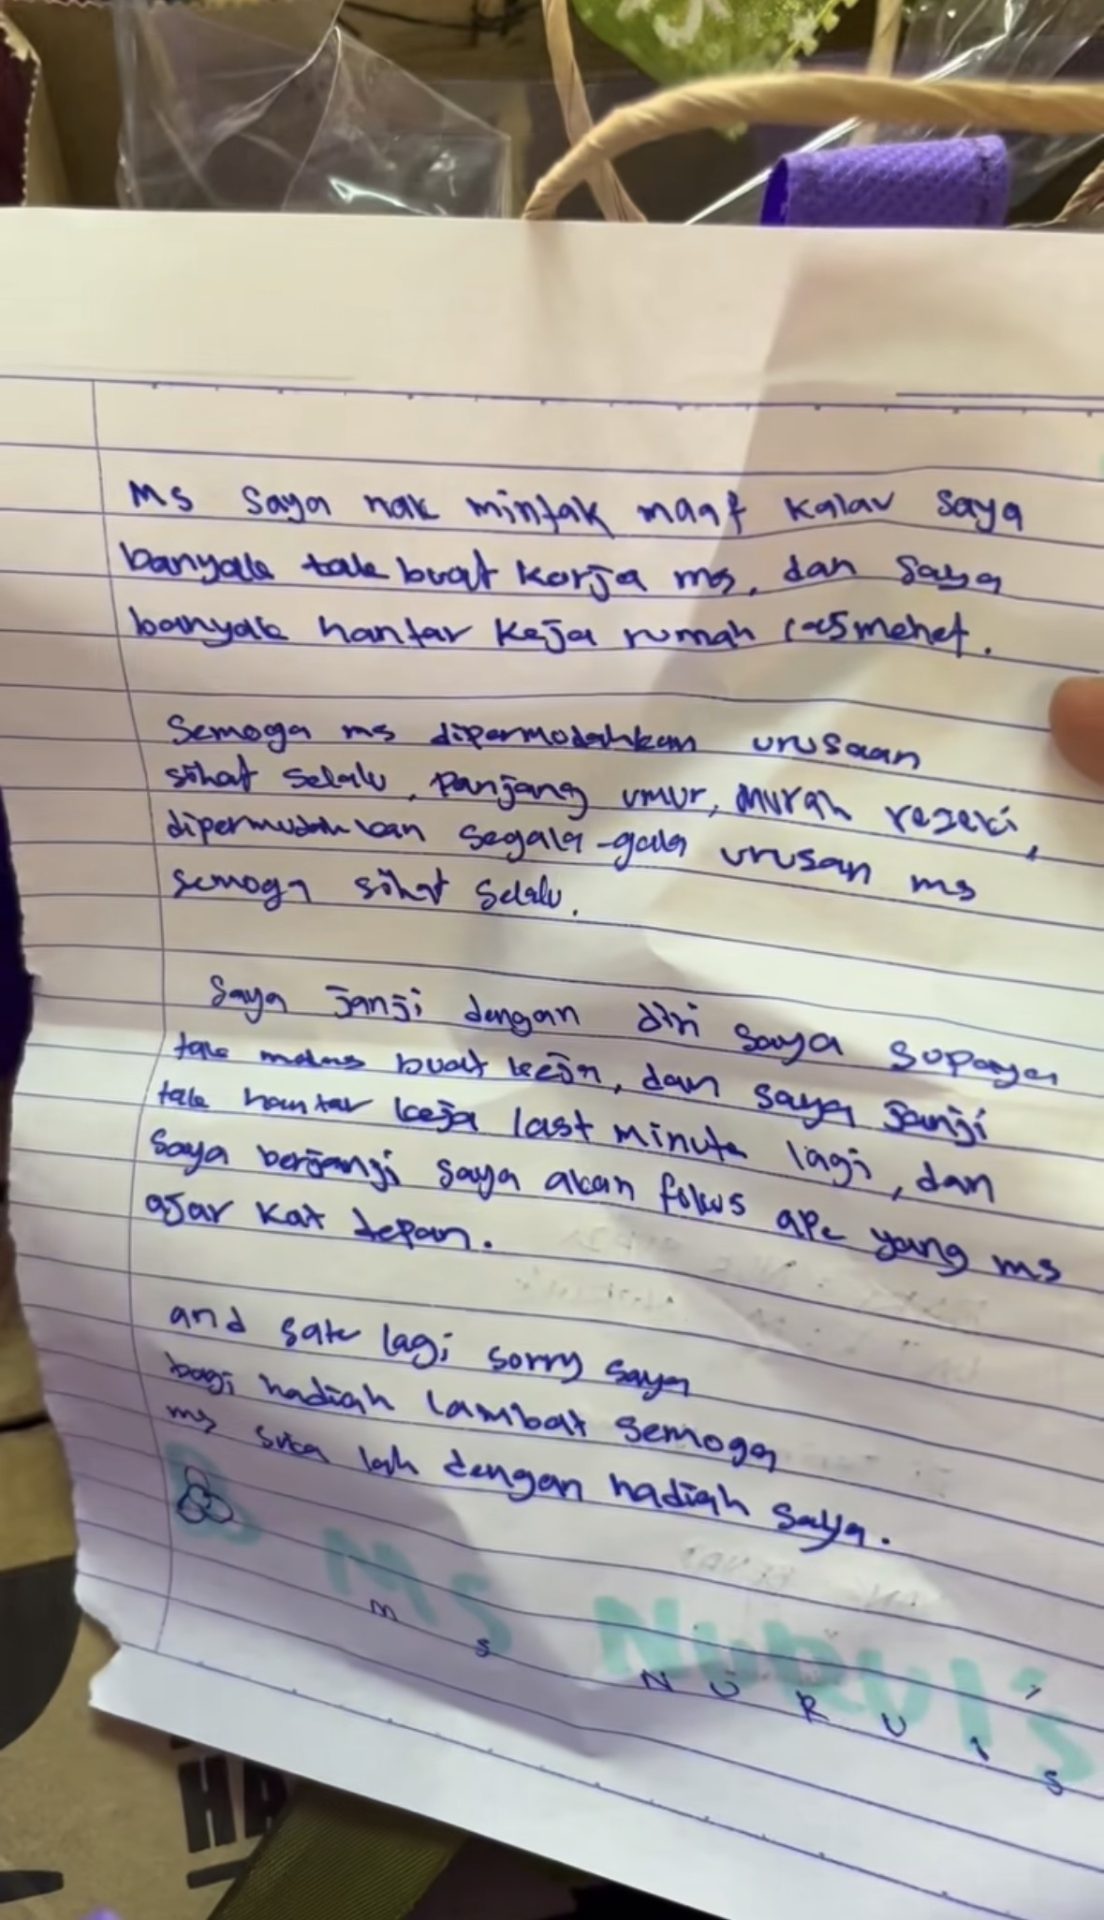 Ms Saya nak mintak maaf kalau saya
banyak tak buat kerja ms, dan saya
banyak hantar keja rumah lasmenet.
Semoga ms dipermudahkan urusaan
sihat selalu, Panjang umur, murah rezeki,
dipermudahkan segala-gala urusan ms
semoga sihat selalu.
Saya janji dengan diri saya supaya
tak malas buat, dan saya janji
tak hantar keja last minute lagi, dan
Saya berjanji saya akan fokus ape yang ms
ajar kat depan.
and satu lagi sorry saya
bagi hadiah lambat semoga
ms suka lah dengan hadiah saya.
Ms NURUl's
ms NURUl's